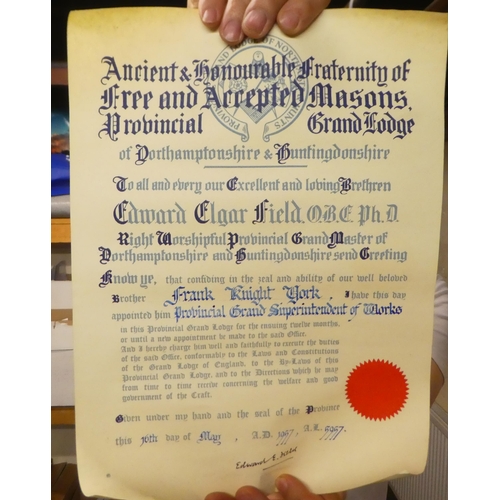 Ancient & Honourable Fraternity of
Free and Accepted Masons,
Provincial Grand Lodge
of Northamptonshire & Huntingdonshire
To all and every our Excellent and loving Brethren
Edward Elgar Field, O.B.E. Ph.D.
Right Worshipful Provincial Grand Master of
Northamptonshire and Huntingdonshire send Greeting
Know ye, that confiding in the zeal and ability of our well beloved
Brother Frank Knight York, I have this day
appointed him Provincial Grand Superintendent of Works
in this Provincial Grand Lodge for the ensuing twelve months
or until a new appointment be made to the said Office.
And I hereby charge him well and faithfully to execute the duties
of the said Office, conformably to the Laws and Constitutions
of the Grand Lodge of England, to the By-Laws of this
Provincial Grand Lodge, and to the Directions which he may
from time to time receive concerning the welfare and good
government of the Craft.
Given under my hand and the seal of the Province
this 16th day of May, A.D. 1967. A.L. 5967.
Edward E. Field